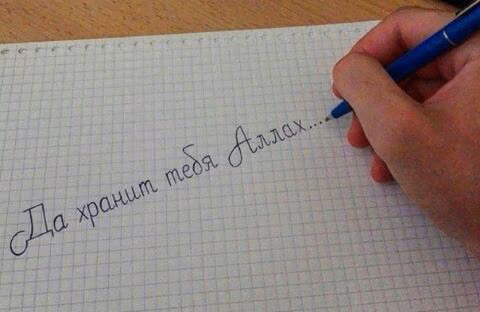 Да хранит тебя Аллах....